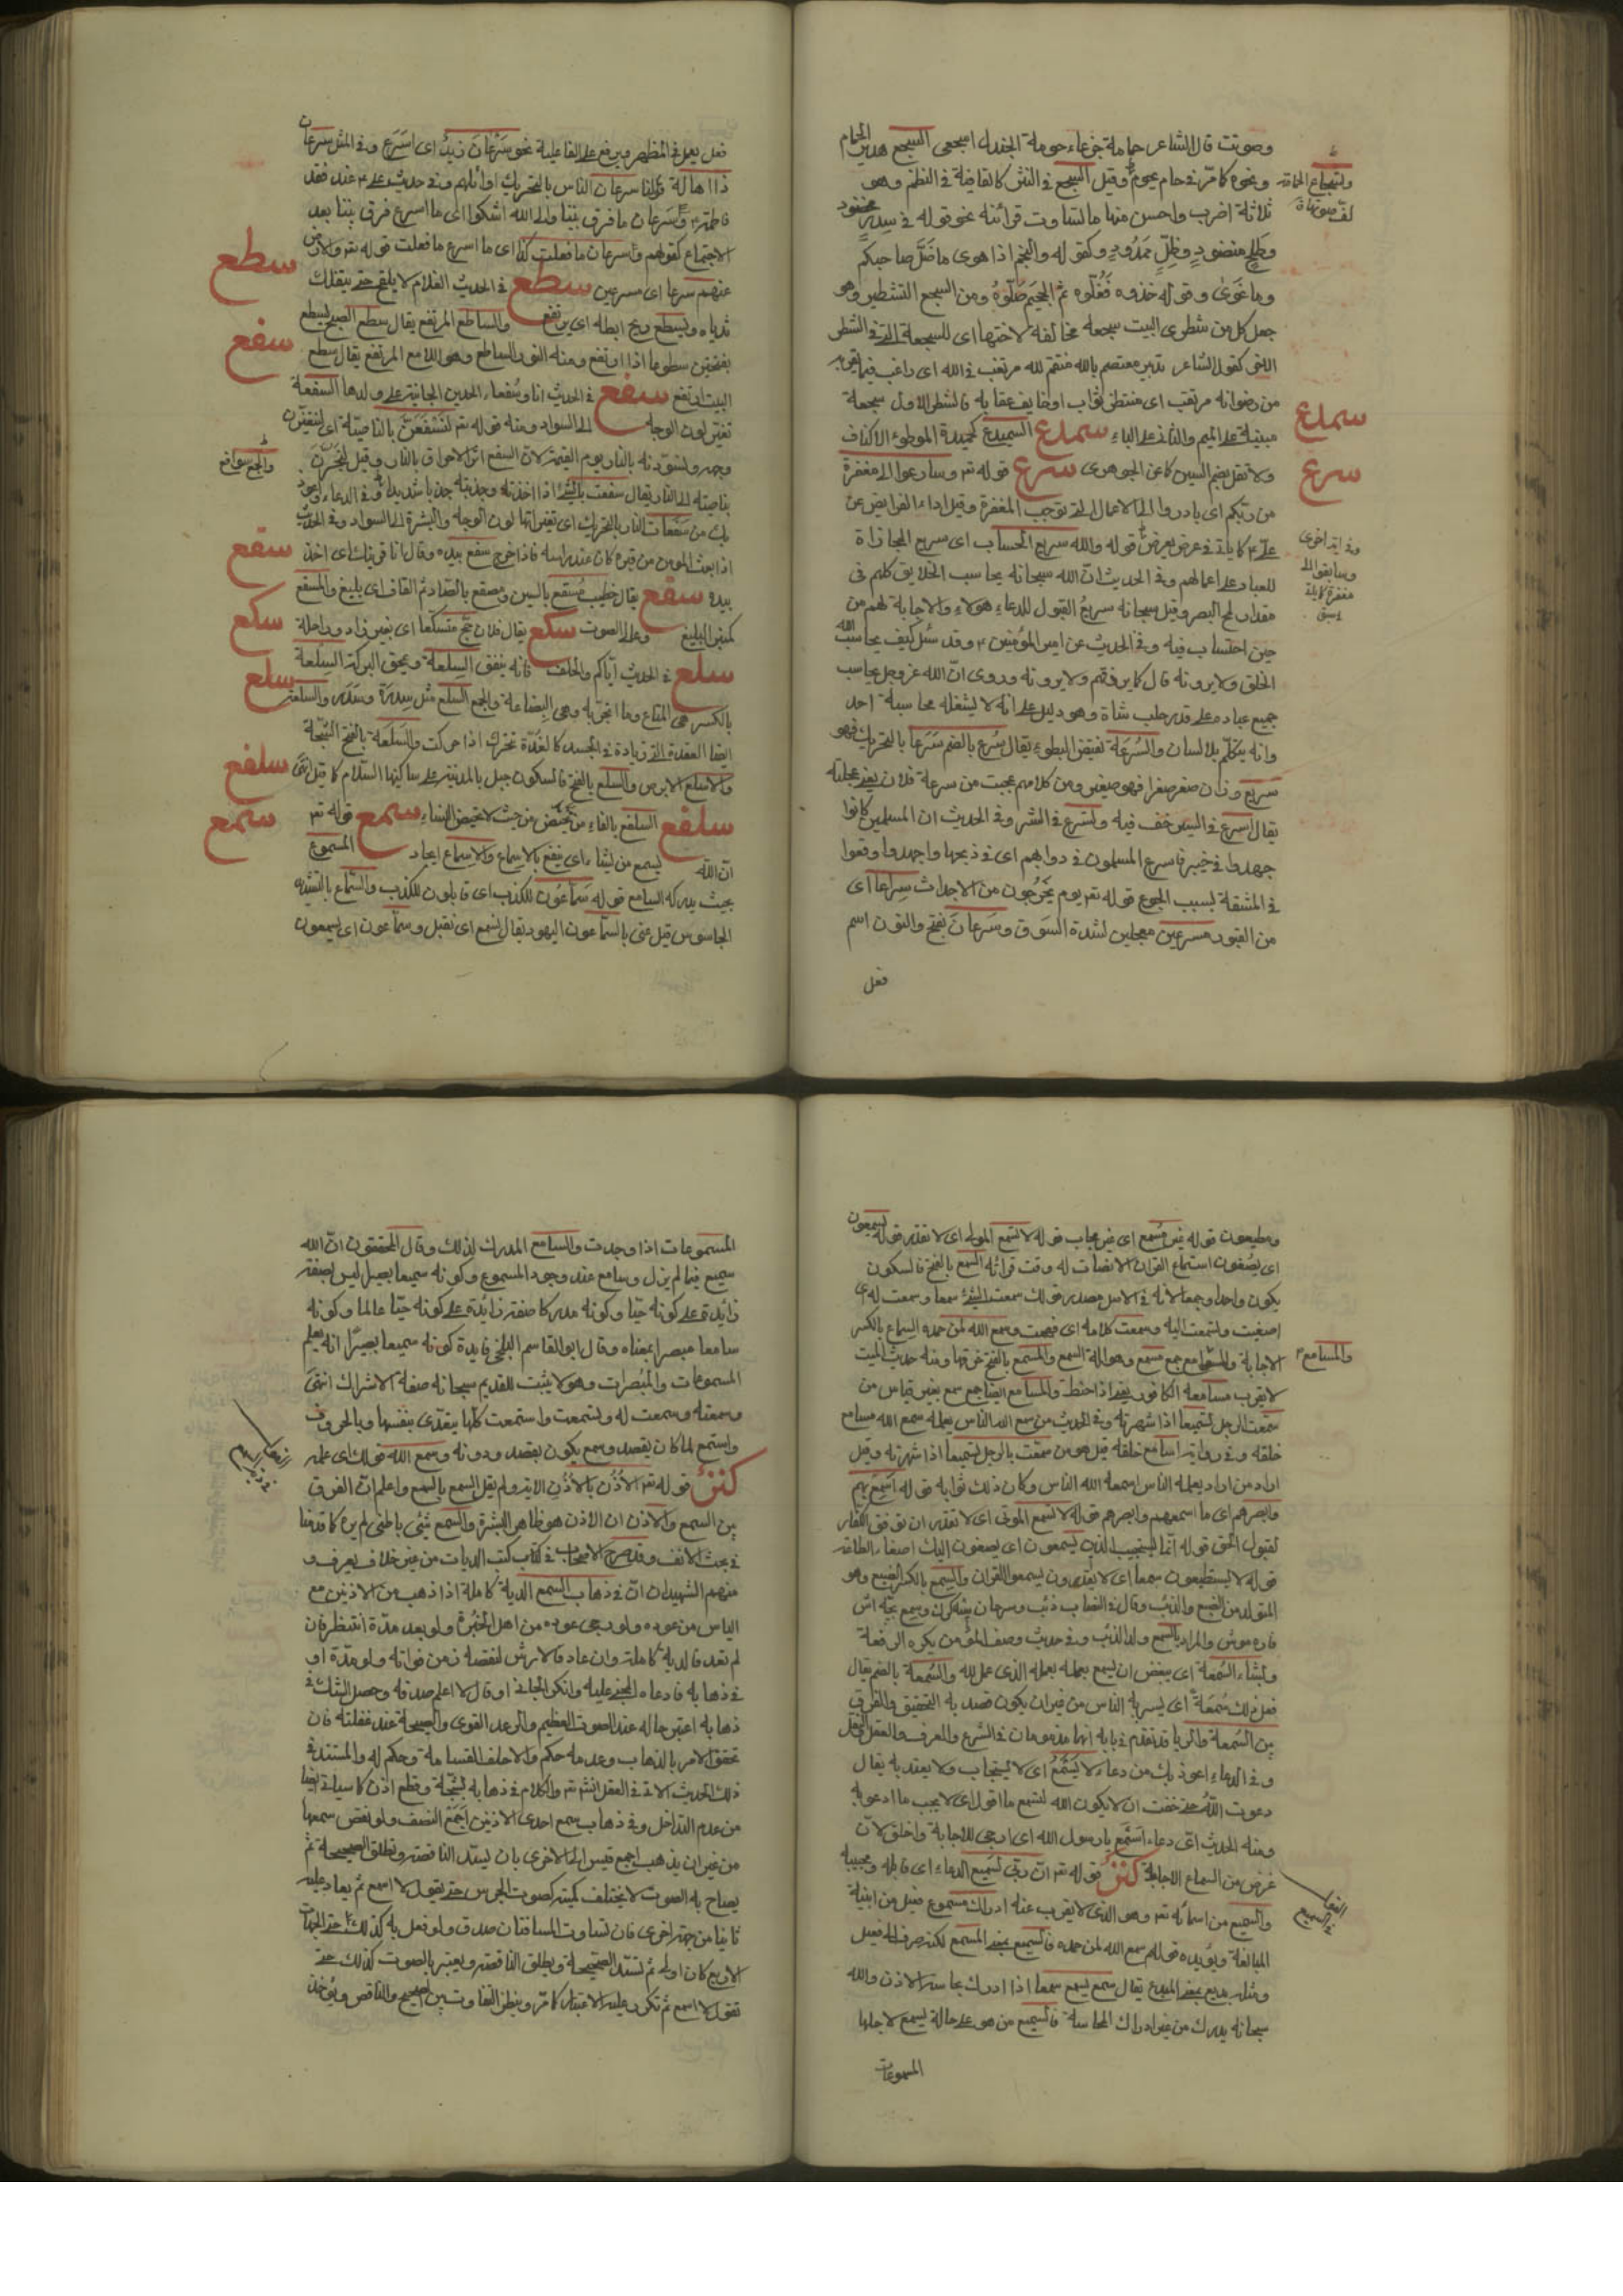 وصوتت قال الشاعر حمامة جرعاء حومة الجندل اسجعي السجع هدير الحمام
ونحوه كما مرّ في حام يحوم وقيل السجع في النثر كالقافية في النظم وهو
ثلاثة اضرب واحسن منها ما تساوت قرائنه نحو قوله في سدر مخضود
وطلح منضود وظلّ ممدود وكقوله والنجم اذا هوى ما ضلّ صاحبكم
وما غوى وقوله خذوه فغلّوه ثم الجحيم صلّوه ومن السجع التشطير وهو
جعل كل من شطري البيت سجعة مخالفة لاختها اى للسجعة التي في الشطر
كقول الشاعر تدبير معتصم بالله منتقم لله مرتغب في الله اى راغب فيما يقربه
من رضوانه مرتقب اى منتظر ثوابه او خايف عقابه فالشطر الاول سجعة
مبنية على الميم والثاني على الباء سمدع السميدع كحميدع الموطوء الاكناف
ولا تقل بضم السين كما عن الجوهرى سرع قوله تع وسارعوا الى مغفرة
من ربّكم اى بادروا الى الاعمال التي توجب المغفرة وقيل اداء الفرايض عن
على ع كما ياتي في عرض يعرض قوله والله سريع الحساب اى سريع المجازاة
للعباد على اعمالهم وفي الحديث انّ الله سبحانه يحاسب الخلايق كلهم في
مقدار لمح البصر وقيل سبحانه سريع القبول للدعاء هولاء والاجابة لهم من
حين احتساب فيه وفي الحديث عن امير المؤمنين ع وقد سُئل كيف يحاسب الله
الخلق ولا يرونه قال كما يرزقهم ولا يرونه وروى انّ الله عز وجل يحاسب
جميع عباده على قدر حلب شاة وهو دليل على انه لا يشغله محاسبة احد
وانه يتكلّم بلا لسان والسُّرعة نقيض البطوء يقال سرع بالضم سرعا بالتحريك فهو
سريع وزان صغر صغرا فهو صغير ومن كلامهم عجبت من سرعة فلان يعني عجلته
يقال اسرع في السير خف فيه وتسرع في الشر وفي الحديث ان المسلمين كانوا
جهدوا في خيبر فاسرع المسلمون في دوابهم اى في ذبحها واجهدوا وقعوا
في المشقة بسبب الجوع قوله تع يوم يخرجون من الاجداث سراعا اى
من القبور مسرعين معجلين لشدة السوق وسرعان بفتح والنون اسم
فعل
سمدع
سرع
وفي اية اخرى
وسابقوا الى
مغفرة كما ياتي في
سبق
فعل يعمل في المظهر ويرفع على الفاعلية نحو سرعان زيد اى اسرع وفي المثل سرعان
ذا اهالة قولنا سرعان الناس بالتحريك اوائلهم وفي حديث على ع عند فقد
فاطمة ع وسرعان ما فرق بيننا والى الله اشكو اى ما اسرع فرق بيننا بعد
الاجتماع كقولهم وسرعان ما فعلت كذا اى ما اسرع ما فعلت
سراعا اى مسرعين سطع في الحديث الغلام لا يلقح حتى يتفلك
ثدياه ويسطع ريح ابطه اى يرتفع والساطع المرتفع يقال سطع الصبح يسطع
بفتحتين سطوعا اذا ارتفع ومنه النور الساطع وهو اللامع المرتفع يقال سطع
البيت ارتفع سفع في الحديث انا وسفعاء الخدين الحانية على ولدها السفعة
تغيّر لون الوجه الى السواد ومنه قوله تع لنسفعن بالناصية اى لنغيّرن
وجهه ولنسوّدنه بالنار يوم القيمة لان السفع اثر الاحراق بالنار وقيل لنجرّن
بناصيته الى النار يقال سفعت بالشئ اذا اخذته وجذبته جذبا شديدا وفي الدعاء واعوذ
بك من سفعات النار بالتحريك اى تغيراتها لون الوجه والبشرة الى السواد وفي الحديث
اذا بعث المومن من قبره كان عند راسه فاذا خرج سفع بيده وقال انا قرينك اى اخذ
بيده سقع يقال خطيب مسقع بالسين ومصقع بالصاد ثم القاف اى بليغ والمسقع
كمنبر البليغ وعلى الصوت سكع يقال فلان حجّ متسكعا اى بغير زاد وراحلة
سلع في الحديث ايّاكم والحلف فانه ينفق السلعة ويمحق البركة السلعة
بالكسر هى المتاع وما اتجر به وهى البضاعة والجمع السلع مثل سدرة وسدر والسلعة
ايضا الغدة التي زيادة في الجسد كالغدة تتحرك اذا حركت والسلعة بالفتح الشجّة
والاسلع الابرص والسلع بالفتح فالسكون جبل بالمدينة على ساكنها السلام كما قيل انتهى
سلفع السلفع بالفاء من تحيض من حيث لا تحيض النساء سمع قوله تع
انّ الله يسمع من يشاء اى ينفع بالاسماع والاسماع ايجاد المسموع
بحيث يدركه السامع قوله سمّاعون للكذب اى قابلون للكذب والسمّاع بالتشديد
الجاسوس قيل عنى بالسمّاعون اليهود يقال لسمع اى نقبل وسمّاعون اى يسمعون
سطع
سفع
والجمع سوافع
سقع
سكع
سلع
سلفع
سمع
ومطيعون قوله غير مسمع اى غير مجاب قوله لا تسمع الموتى اى لا تقدر قوله يسمعون
اى يصغون استماع القران الانصات له وقت قرائته السمع بالفتح فالسكون
يكون واحدا وجمعا لانه في الاصل مصدر قولك سمعت الشئ سمعا وسمعت له اى
اصغيت وتسمعت اليه وسمعت كلامه اى فهمت وسمع الله لمن حمده السماع بالكسر
الاجابة والمسامع جمع مسمع وهو آلة السمع والمسمع بالفتح خرقها ومنه حديث الميت
لا يقرب مسامعه الكافور يعني اذا حنط والمسامع ايضا جمع سمع بغير قياس من
سمّعت الرجل تسميعا اذا شهرته وفي الحديث من سمع الناس بعمله سمع الله مسامع
خلقه وفي رواية اسامع خلقه قيل هو من سمّعت بالرجل تسميعا اذا شهرته وقيل
اراد من اراد بعمله الناس اسمعه الله الناس وكان ذلك ثوابه قوله اسمع بهم
وابصر هم اى ما اسمعهم وابصرهم قوله لا تسمع الموتى اى لا تقدر ان توفق الكفار
لقبول الحق قوله انّما يستجيب الذين يسمعون اى يصغون اليك اصغاء الطاعة
قوله لا يستطيعون سمعا اى لا يقدرون يسمعوا القران والسمع بالكسر الضبع وهو
المتولد من الضبع والذئب وقال في النصاب ذئب وسرحان
فاره موش والمراد بالسمع ولد الذئب وفي حديث وصف المؤمن يكره الرفعة
ويشناء السمعة اى يبغض ان يسمع بعمله الذى عمل لله والسمعة بالضم يقال
فعل ذلك سمعة اى ليسر به الناس من غير ان يكون قصد به التحقيق والفرق
بين السمعة والريا قد تقدم في بابه انها مذمومان في الشرع والعرف والعقل
وفي الدعاء اعوذ بك من دعاء لا يسمع اى لا يستجاب ولا يعتد به يقال
دعوت الله حتى خفت ان لا يكون الله يسمع ما اقول اى لا يجب ما ادعو به
ومنه الحديث اىّ دعاء اسمع يا رسول الله اى ارجى للاجابة واخلق لانّ
غرض من السماع الاجابة كنز قوله تع انّ ربى لسميع الدعاء اى قابله ومجيبه
والسميع من اسمائه تع وهو الذى لا يعزب عنه ادراك مسموع فعيل من ابنية
المبالغة ويؤيده قولهم سمع الله لمن حمده فالسميع بمعنى المسمع لكنه صرف الى فعيل
ومثله بديع بمعنى المبدع يقال سمع يسمع سمعا اذا ادرك بحاسة الاذن والله
سبحانه يدرك من غير ادراك الحاسة فالسميع من هو على حالة يسمع لاجلها
المسموعات
والمسامع
المسموعات اذا وجدت والسامع المدرك لذلك وقال المحققون انّ الله
سميع فيما لم يزل وسامع عند وجود المسموع وكونه سميعا بصيرا ليس بصفة
زائدة على كونه حيّا وكونه مدركا صفة زائدة على كونه حيّا عالما وكونه
سامعا مبصرا بمعناه وقال ابو القاسم البلخى فايدة كونه سميعا بصيرا انه يعلم
المسموعات والمبصرات وهو لا يثبت للقديم سبحانه صفة الادراك انتهى
وسمعته وسمعت له وتسمعت واستمعت كلها يتعدى بنفسها وبالحروف
واستمع لما كان يقصد وسمع يكون بقصد ودونه وسمع الله قولك اى علمه
كنز قوله تع الاذن بالاذن الاية ولم يقل السمع بالسمع واعلم انّ الفرق
بين السمع والاذن ان الاذن هو ظاهر البشرة والسمع شئ باطنى لم يره كما قدمنا
في بحث الانف وقد صرح الاصحاب في كتاب كتب الديات من غير خلاف يعرف و
منهم الشهيدان انّ في ذهاب السمع الدية كاملة اذا ذهب من الاذنين مع
الياس من عوده ولو رجى عوده من اهل الخبرة ولو بعد مدّة انتظر فان
لم تعد فالدية كاملة وان عاد فالارش لنقصه زمن فواته ولو مدّة او
في ذهابه فادعاه المجني عليه وانكر الجاني او قال لا اعلم صدقه وحصل الشك في
ذهابه اعتبر حاله عند الصوت العظيم والرعد القوى والصيحة عند غفلته فان
تحقق الامر بالذهاب وعدمه حكم والا حلف القسامة وحكم له والمستند في
ذلك الحديث الاتي في العقل انش تع والكلام في ذهابه بشجّة وقطع اذن كما سياتي ايضا
من عدم التداخل وفي ذهاب سمع احدى الاذنين اجمع النصف ولو نقص سمعها
من غير ان يذهب اجمع قيس الى الاخرى بان تسدّ الناقصة وتطلق الصحيحة ثم
يصاح به بصوت لا يختلف كميته كصوت الجرس حتى يقول لا اسمع ثم يعاد عليه
ثانيا من جهة اخرى فان تساوت المسافتان صدق ولو فعل به كذلك في الجهات
الاربع كان اولى ثم تسدّ الصحيحة ويطلق الناقصة ويعتبر بالصوت كذلك حتى
تقول لا اسمع ثم تكرر عليه الاعتبار كما مرّ وينظر التفاوت بين الصحيح والناقص ويؤخذ